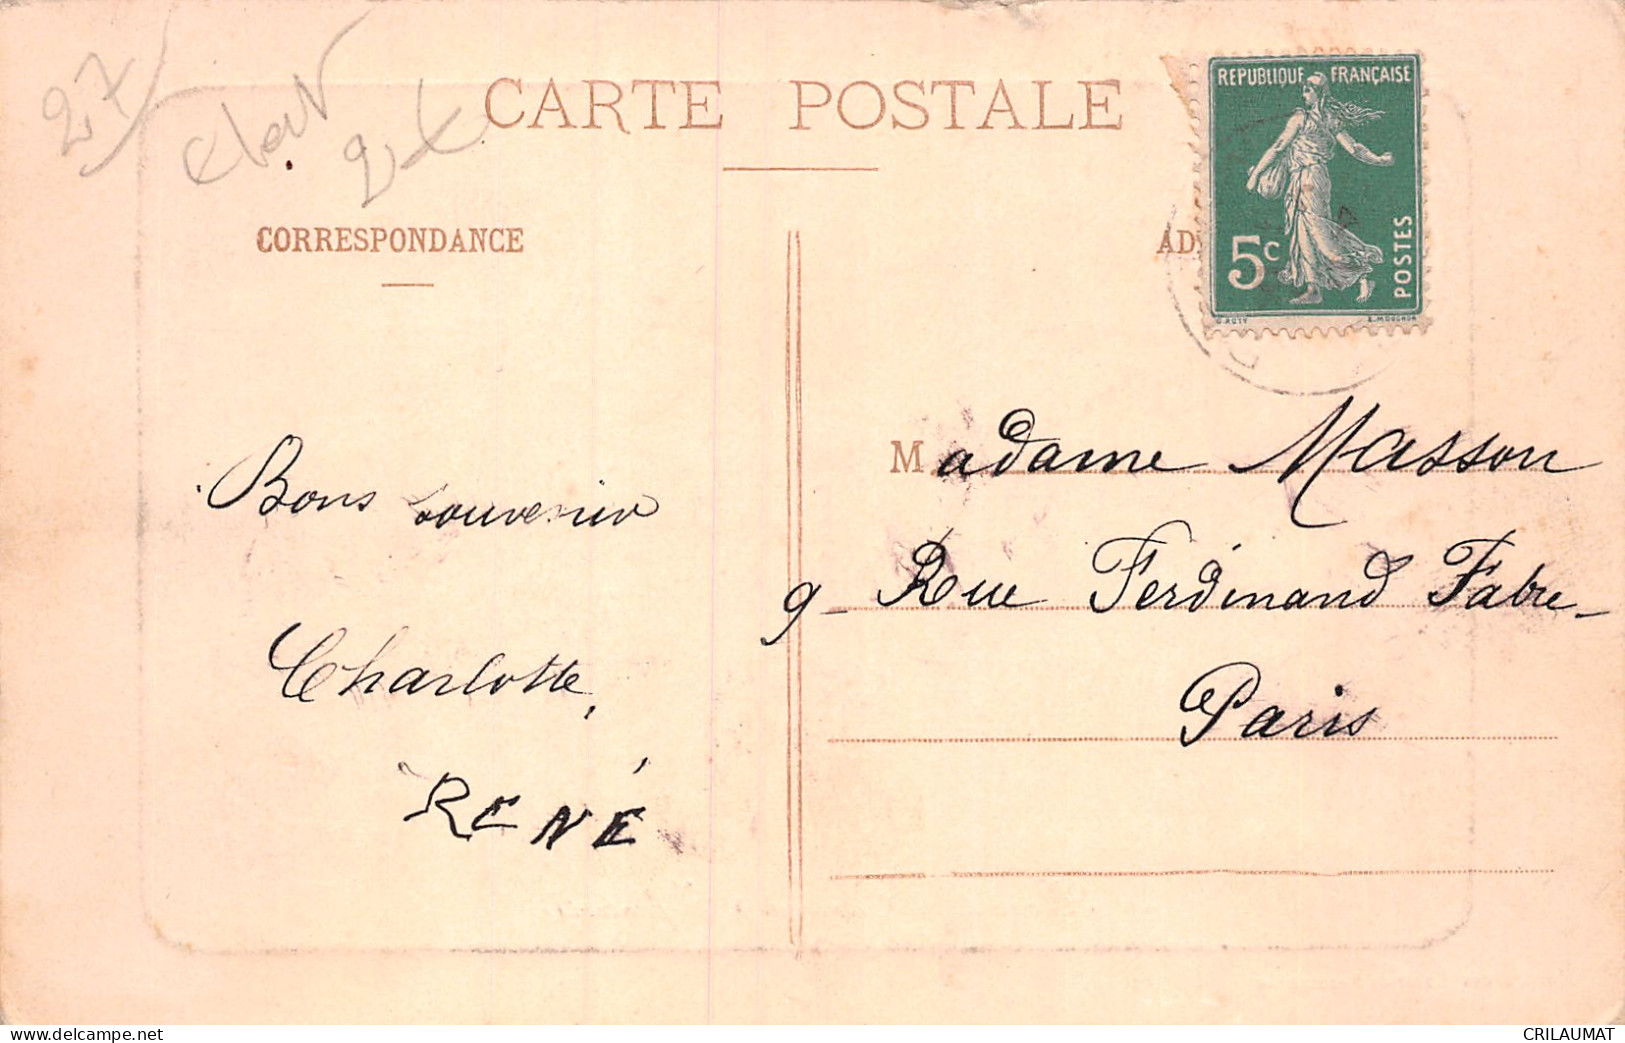 27
2
CARTE POSTALE
REPUBLIQUE FRANÇAISE
5c
POSTES
CORRESPONDANCE
AD
Madame Masson
9- Rue Ferdinand Fabre-
Paris
Bons souvenir
Charlotte,
RENÉ
www.delcampe.net
CRILAUMAT